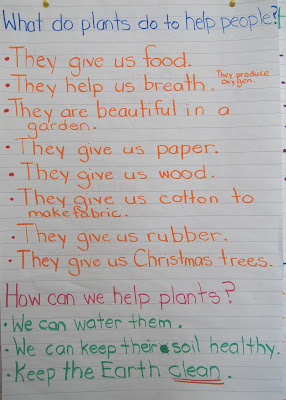 What do plants do to help people?
• They give us food.
• They help us breath. They produce
oxygen.
• They are beautiful in a
garden.
• They give us paper.
• They give us wood.
• They give us cotton to
make fabric.
• They give us rubber.
• They give us Christmas trees.
How can we help plants?
• We can water them.
• We can keep their soil healthy.
• Keep the Earth clean.